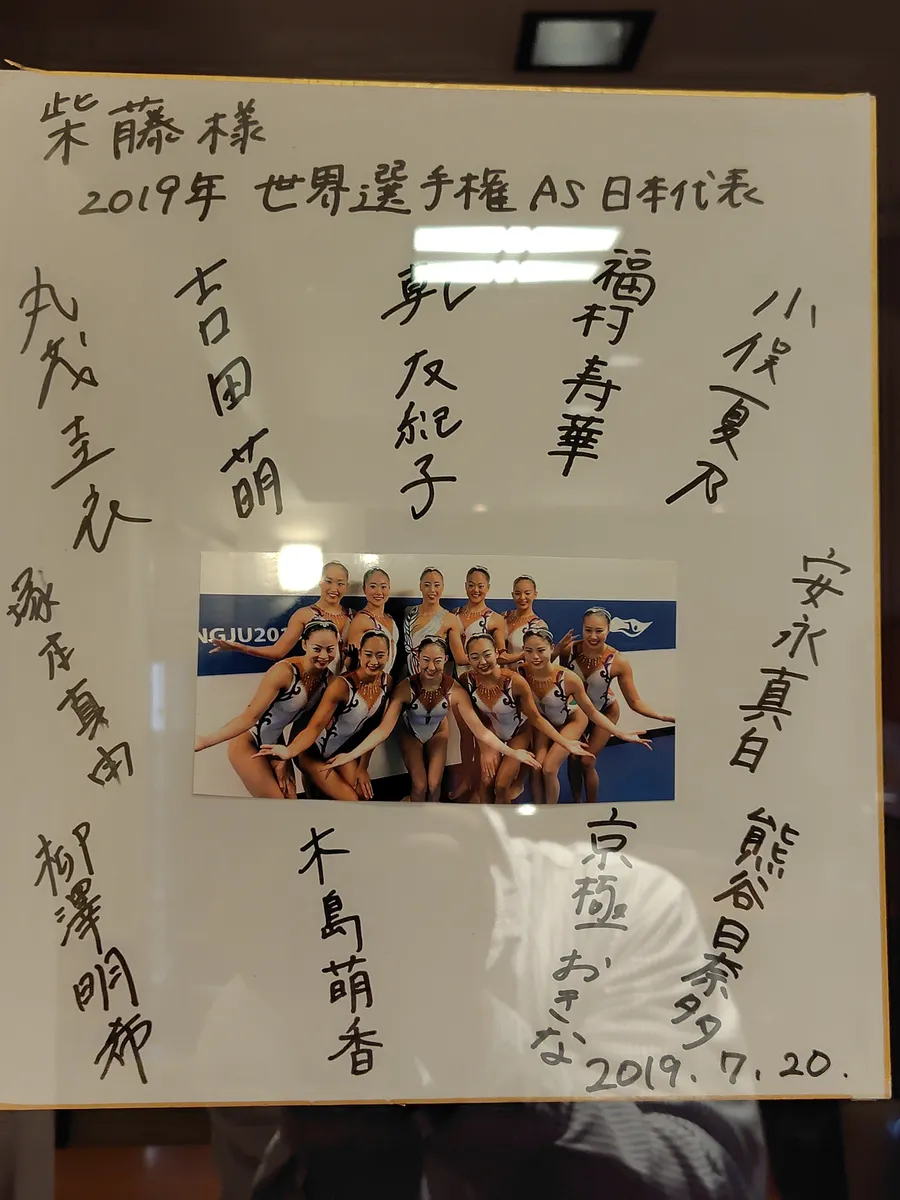 柴藤様
2019年 世界選手権 AS 日本代表
小俣夏乃
福村寿華
乾友紀子
吉田萌
丸茂圭衣
安永真白
NGJU201
塚本真由
熊谷日奈多
京極おきな
木島萌香
柳澤明希
2019.7.20.